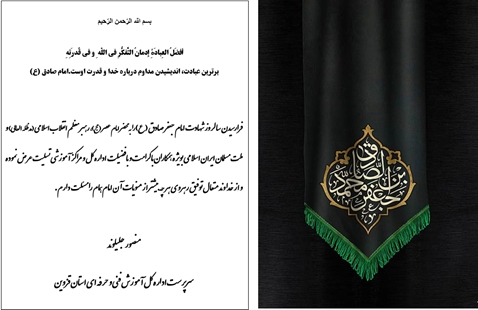 بسم الله الرّحمن الرّحیم
اَفضَلُ العِبادَةِ إدمانُ التَّفَکُّرِ فی اللهِ وَ فی قُدرَتِهِ
برترین عبادت، اندیشیدن مداوم درباره خدا و قدرت اوست.امام صادق (ع)
فرارسیدن سالروز شهادت امام جعفر صادق (ع) را به محضر امام عصر (عج)، رهبر معظم انقلاب اسلامی (مدظله العالی) و
ملت مسلمان ایران اسلامی بویژه همکاران با کرامت و با فضیلت اداره کل و مراکز آموزشی تسلیت عرض نموده
و از خداوند متعال توفیق رهروی هر چه بیشتر از منویات آن امام همام را مسئلت دارم.
منصور جلیلوند
سرپرست اداره کل آموزش فنی و حرفه ای استان قزوین
جعفر بن محمد الصادق